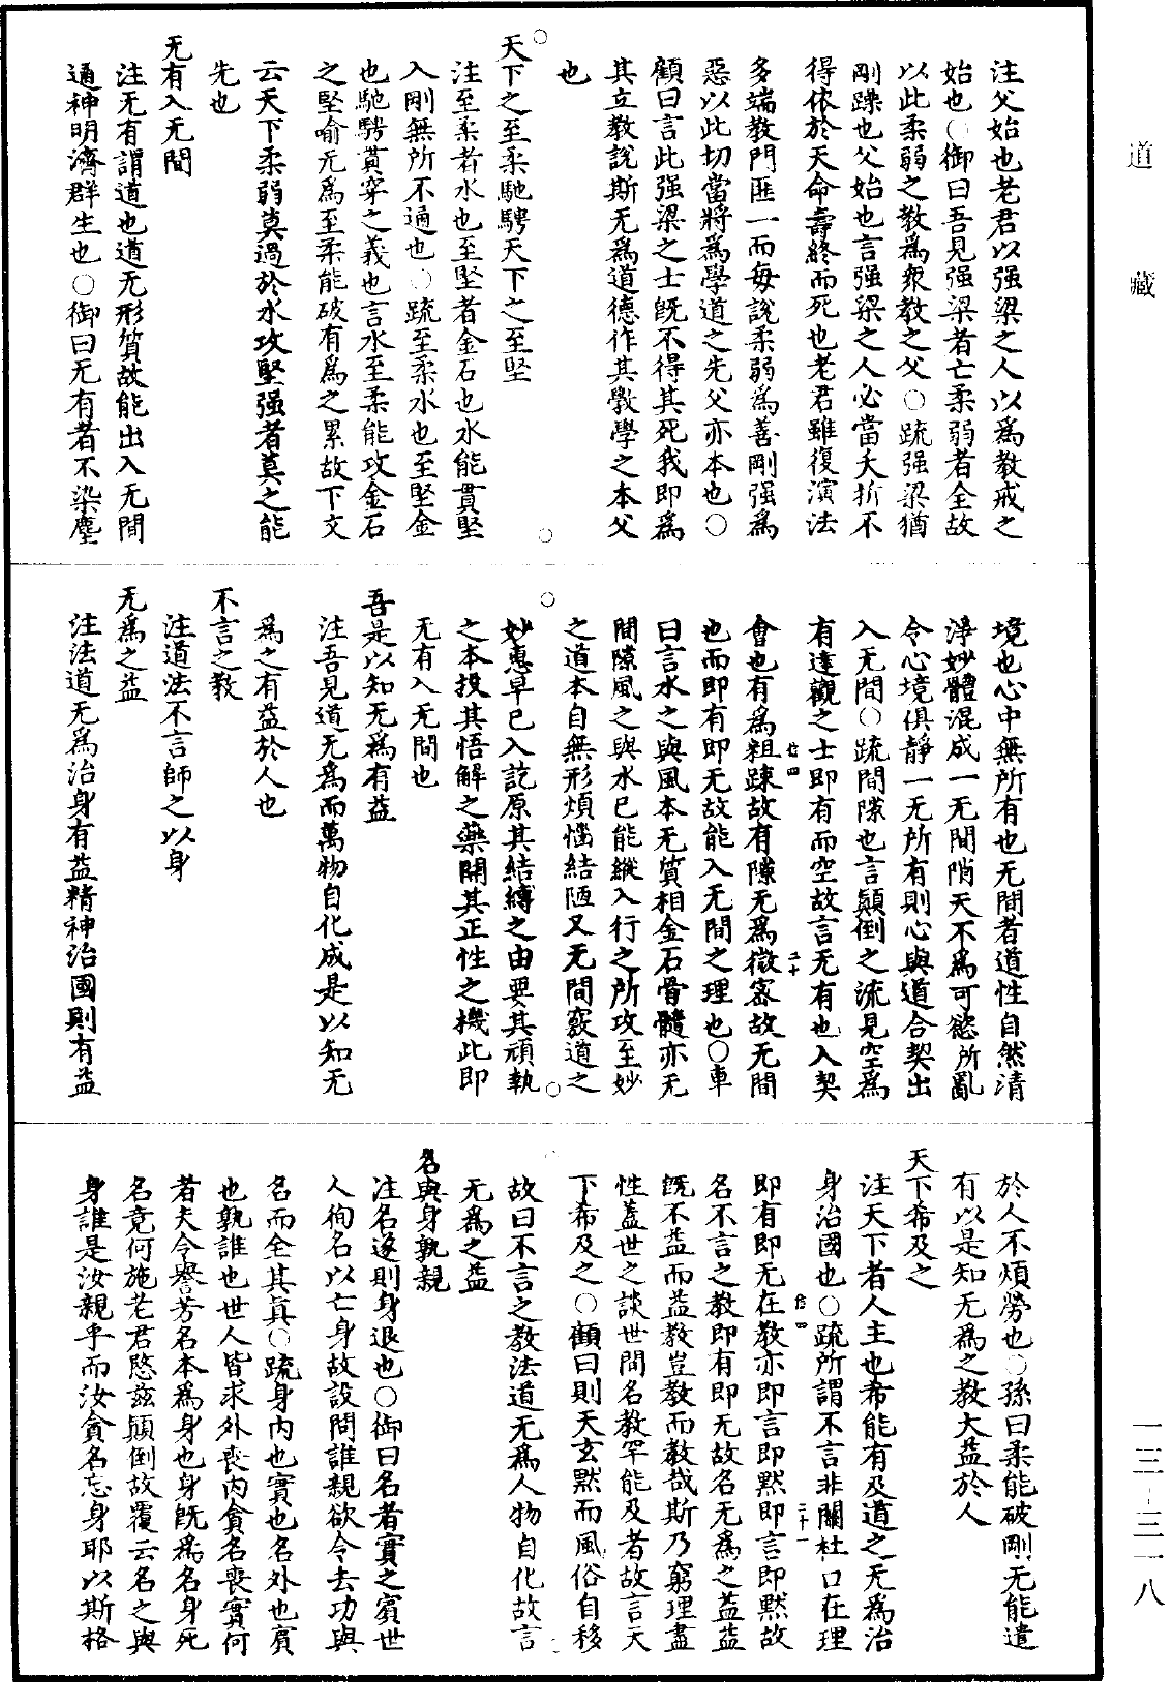 道藏
注父始也老君以强梁之人以為教戒之
始也○御曰吾見强梁者亡柔弱者全故
以此柔弱之教為衆教之父○疏强梁猶
剛躁也父始也言强梁之人必當夭折不
得依於天命壽終而死也老君雖復演法
多端教門匪一而每說柔弱為善剛强為
惡以此切當將為學道之先父亦本也○
顧曰言此强梁之士旣不得其死我即為
其立教說斯无為道德作其斆學之本父
也
○
天下之至柔馳騁天下之至堅
注至柔者水也至堅者金石也水能貫堅
入剛無所不通也○疏至柔水也至堅金
也馳騁貫穿之義也言水至柔能攻金石
之堅喻无為至柔能破有為之累故下文
云天下柔弱莫過於水攻堅强者莫之能
先也
无有入无間
注无有謂道也道无形質故能出入无間
通神明濟群生也○御曰无有者不染塵
境也心中無所有也无間者道性自然清
淨妙體混成一无間隙天不為可慾所亂
令心境俱靜一无所有則心與道合契出
入无間○疏間隙也言顛倒之流見空為
有達觀之士即有而空故言无有也入契
會也有為粗疎故有隙无為微密故无間
也而即有即无故能入无間之理也○車
曰言水之與風本无質相金石骨髓亦无
間隙風之與水已能縱入行之所攻至妙
之道本自無形煩惱結陋又无間竅道之
○
妙惠早已入訖原其結縛之由要其頑執
之本投其悟解之藥開其正性之機此即
无有入无間也
吾是以知无為有益
注吾見道无為而萬物自化成是以知无
為之有益於人也
不言之教
注道法不言師之以身
无為之益
注法道无為治身有益精神治國則有益
於人不煩勞也○孫曰柔能破剛无能遣
有以是知无為之教大益於人
天下希及之
注天下者人主也希能有及道之无為治
身治國也○疏所謂不言非關杜口在理
即有即无在教亦即言即默即言即默故
名不言之教即有即无故名无為之益益
旣不益而益教豈教而教哉斯乃窮理盡
性蓋世之談世間名教罕能及者故言天
下希及之○顧曰則天玄默而風俗自移
故曰不言之教法道无為人物自化故言
无為之益
名與身孰親
注名遂則身退也○御曰名者實之賓世
人徇名以亡身故設問誰親欲令去功與
名而全其真○疏身內也實也名外也賓
也孰誰也世人皆求外喪內貪名喪實何
者夫令譽芳名本為身也身旣為名身死
名竟何施老君愍茲顛倒故覆云名之與
身誰是汝親乎而汝貪名忘身耶以斯格
一三-三一八